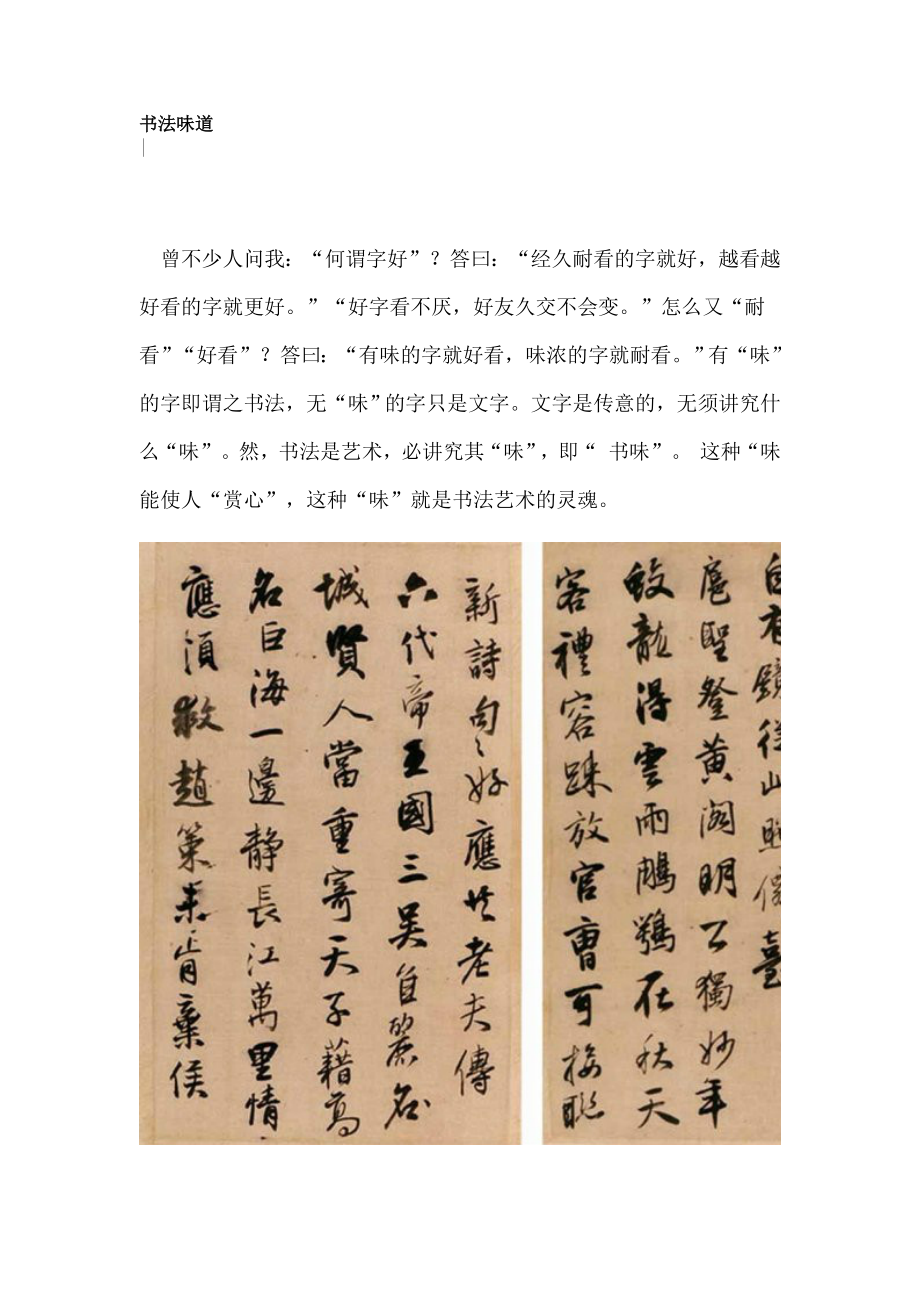 书法味道
曾不少人问我：“何谓字好”？答曰：“经久耐看的字就好，越看越
好看的字就更好。”“好字看不厌，好友久交不会变。”怎么又“耐
看”“好看”？答曰：“有味的字就好看，味浓的字就耐看。”有“味”
的字即谓之书法，无“味”的字只是文字。文字是传意的，无须讲究什
么“味”。然，书法是艺术，必讲究其“味”，即“ 书味”。 这种“味
能使人“赏心”，这种“味”就是书法艺术的灵魂。
自有山臺
扈聖登黃閣明公獨妙年
蛟龍得雲雨鵰鶚在秋天
客禮容疎放官曹可接聯
新詩句〻好應老夫傳
六代帝王國三吳自麗名
城賢人當重寄天子藉高
名巨海一邊靜長江萬里情
應須救趙策未肯棄侯